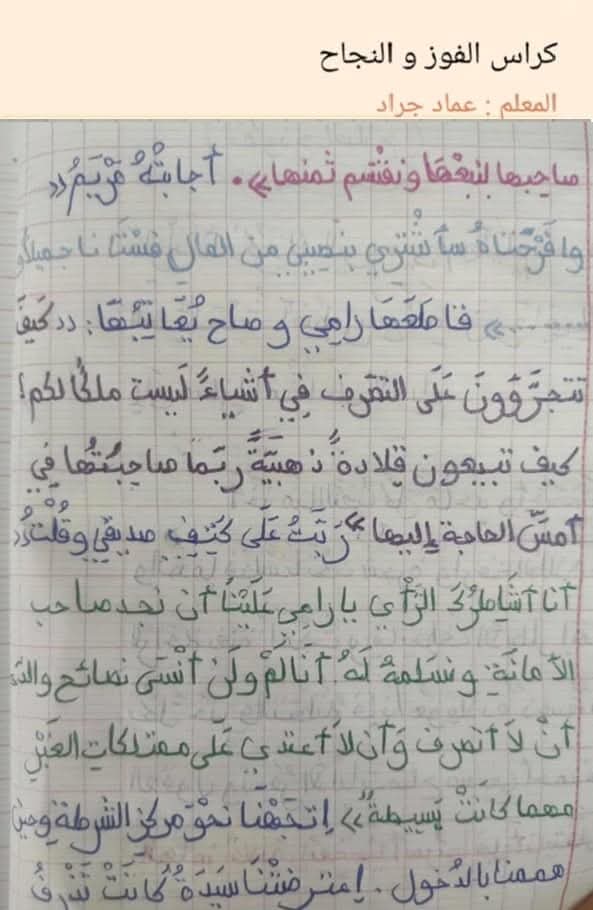 كراس الفوز و النجاح
المعلم : عماد جراد
صاحبها لنبعها ونقتسم ثمنها». أجابتْهُ مَرْيَمُ «
وا فَرْحَتاهُ سأشْتري بنصيبي من المال فسْتَانا جميلا و
» قاطَعَهَا رامي وصاح يُعَاتِبُهَا: «كَيْفَ
تتجرَّؤونَ عَلَى التصرف في أشياءً لَيست ملكًا لكم!
كيف تبيعون قلادةً ذهبيَّةً ربَّما صاحبتُها في
أمسِّ الحاجة إليها» رَبَّتُ عَلَى كَتِفِ صديقي وقُلْتُ:«
أنا أشَاطِرُكَ الرَّأْي يا رامي عَلَيْنَا أن نجد صاحب
الأمانَةِ ونسَلمهُ لَهُ أنَا لَمْ ولَنْ أنْسَى نصائح والد
أنْ لاَ أنصرف وَأن لاَ أعتدي عَلَى ممتلكات الغَيْرِ
مهما كَانَتْ بَسِيطةً» اِتجَهْنَا نَحْوَ مركز الشرطة وحين
هممنا بالدُخول. اِعترضتْنَا سَيدَةٌ كَانَتْ تَذْرِفُ